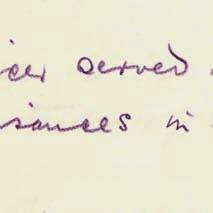 icer served
sances in